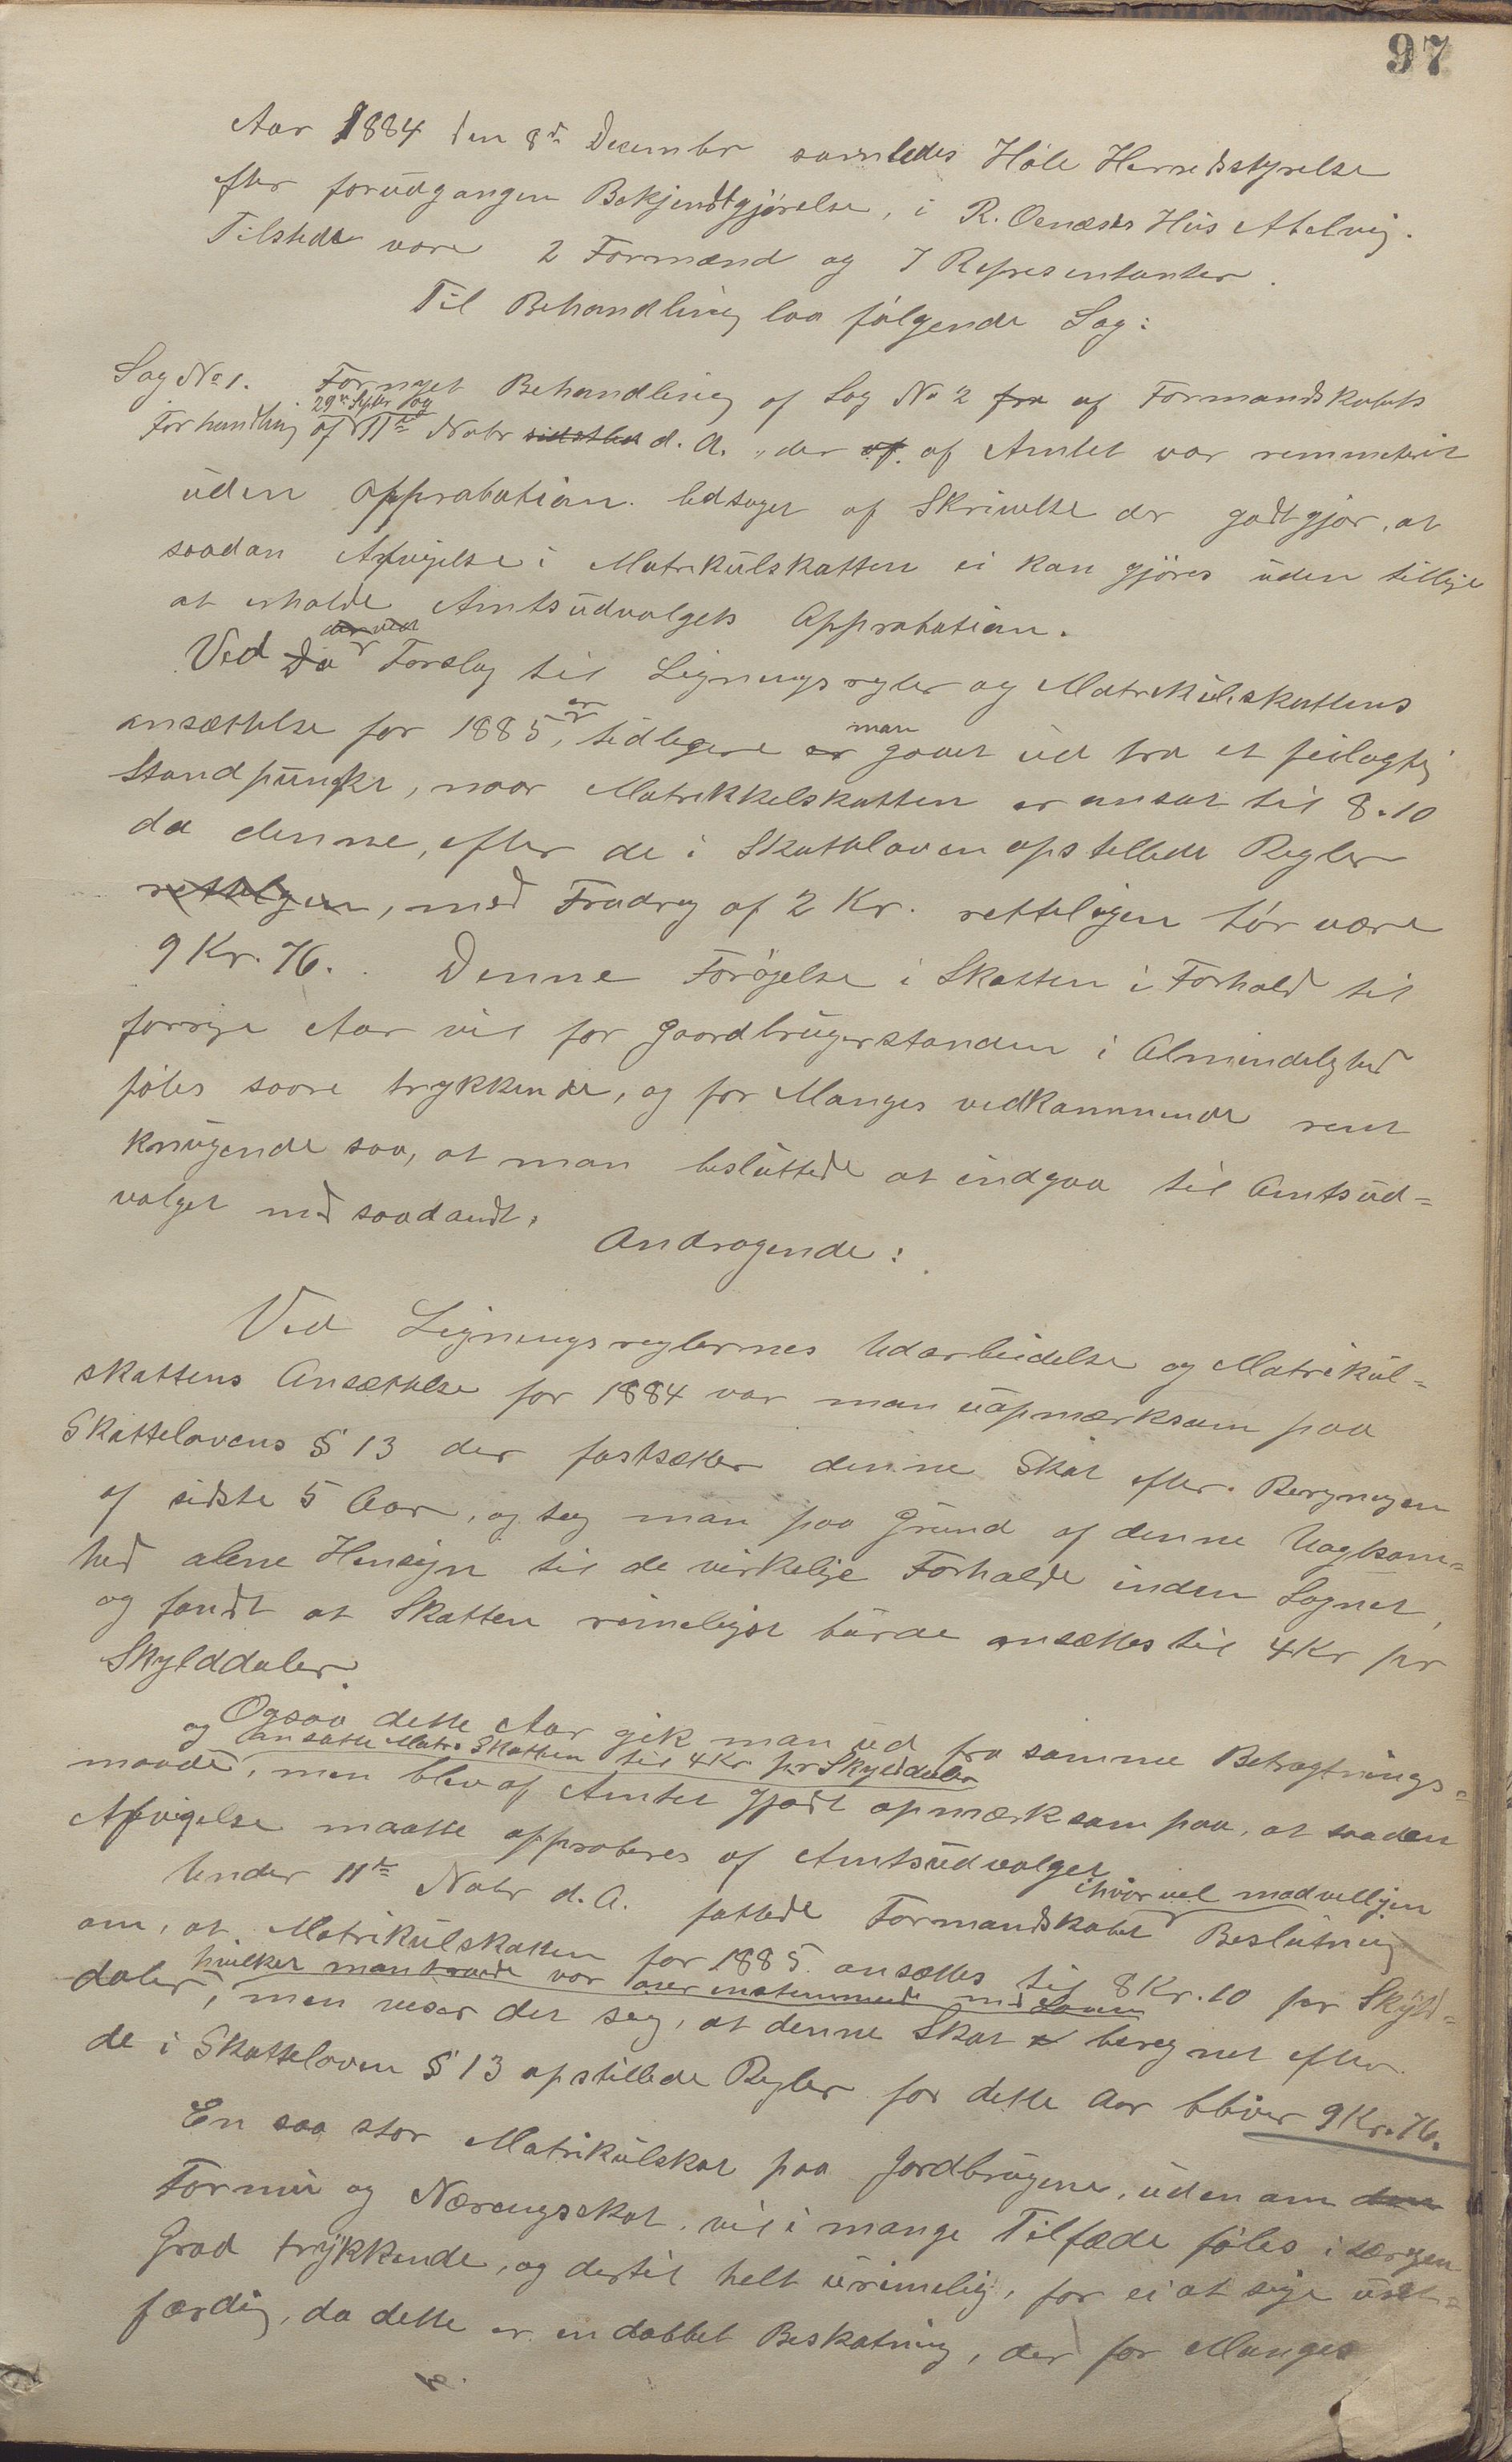 97
Aar 1884 den 8de Decembr samledes Höle Herredsstyrelse
efter forudgangen Bekjendtgjörelse, i R. Oenæses Hus Adelvig.
Tilstede vare 2 Formænd og 7 Representanter.
Til Behandling laa fölgende Sag:
Sag No 1. Fornyet Behandling af Sag No 2 fra af Formandskabets
29de Septbr og
Forhandling af 11te Novbr sidstled d. A., der af. af Amtet var remmiteret
uden Approbation. ledsaget af Skrivelse der godtgjör, at
saadan Afvigelse i Matrikulskatten ei kan gjöres uden tillige
at erholde Amtsudvalgets Approbation.
der ved
Ved Da Forslag til Ligningsregler og Matrikulskattens
er man
ansættelse for 1885, tidligere er gaaet ud fra et feilagtig
Standpunkt, naar Matrikkelskatten er ansat til 8.10
da denne, efter de i Skatteloven opstillede Regler
retteligen, med Fradrag af 2 Kr. retteligen bör være
9 Kr. 76. Denne Forögelse i Skatten i Forhold til
forrige Aar vil for Gaardbrugerstanden i Almindelighed
föles saare trykkende, og for Manges vedkommende rent
knugende saa, at man besluttede at indgaa til Amtsud=
valget med saadandt.
Andragende:
Ved Ligningsreglernes Udarbeidelse og Matrikul=
skattens Ansættelse for 1884 var man uopmærksom paa
Skattelovens § 13 der fastsætter denne Skat efter Beregningen
af sidste 5 Aar, og tog man paa Grund af denne Uagtsom=
hed alene Hensyn til de virkelige Forholde inden Sognet,
og fandt at Skatten rimeligst burde ansættes til 4 Kr pr
Skylddaler.
Ogsaa dette Aar gik man ud fra samme Betragtnings=
og ansatte Matr. Skatten til 4 Kr pr Skylddaler
maade, men blev af Amtet gjort opmærksom paa, at saadan
Afvigelse maatte approberes af Amtsudvalget.
ihvorvel modvilligen
Under 11te Novbr d. A. fattede Formandskabet Beslutning
om, at Matrikulskatten for 1885 ansættes til 8 Kr. 10 pr Skyld=
hvilket man troede var overenstemmende med Loven
daler, men viser det seg, at denne Skat er beregnet efter
de i Skatteloven § 13 opstillede Regler for dette Aar bliver 9 Kr. 76.
En saa stor Matrikulskat paa Jordbrugene, uden om den
Formue og Næringsskat, vil i mange Tilfæde föles i særegen
Grad trykkende, og dertil helt urimelig, for ei at sige uret=
færdig, da dette er en dobbet Beskatning, der for Manges